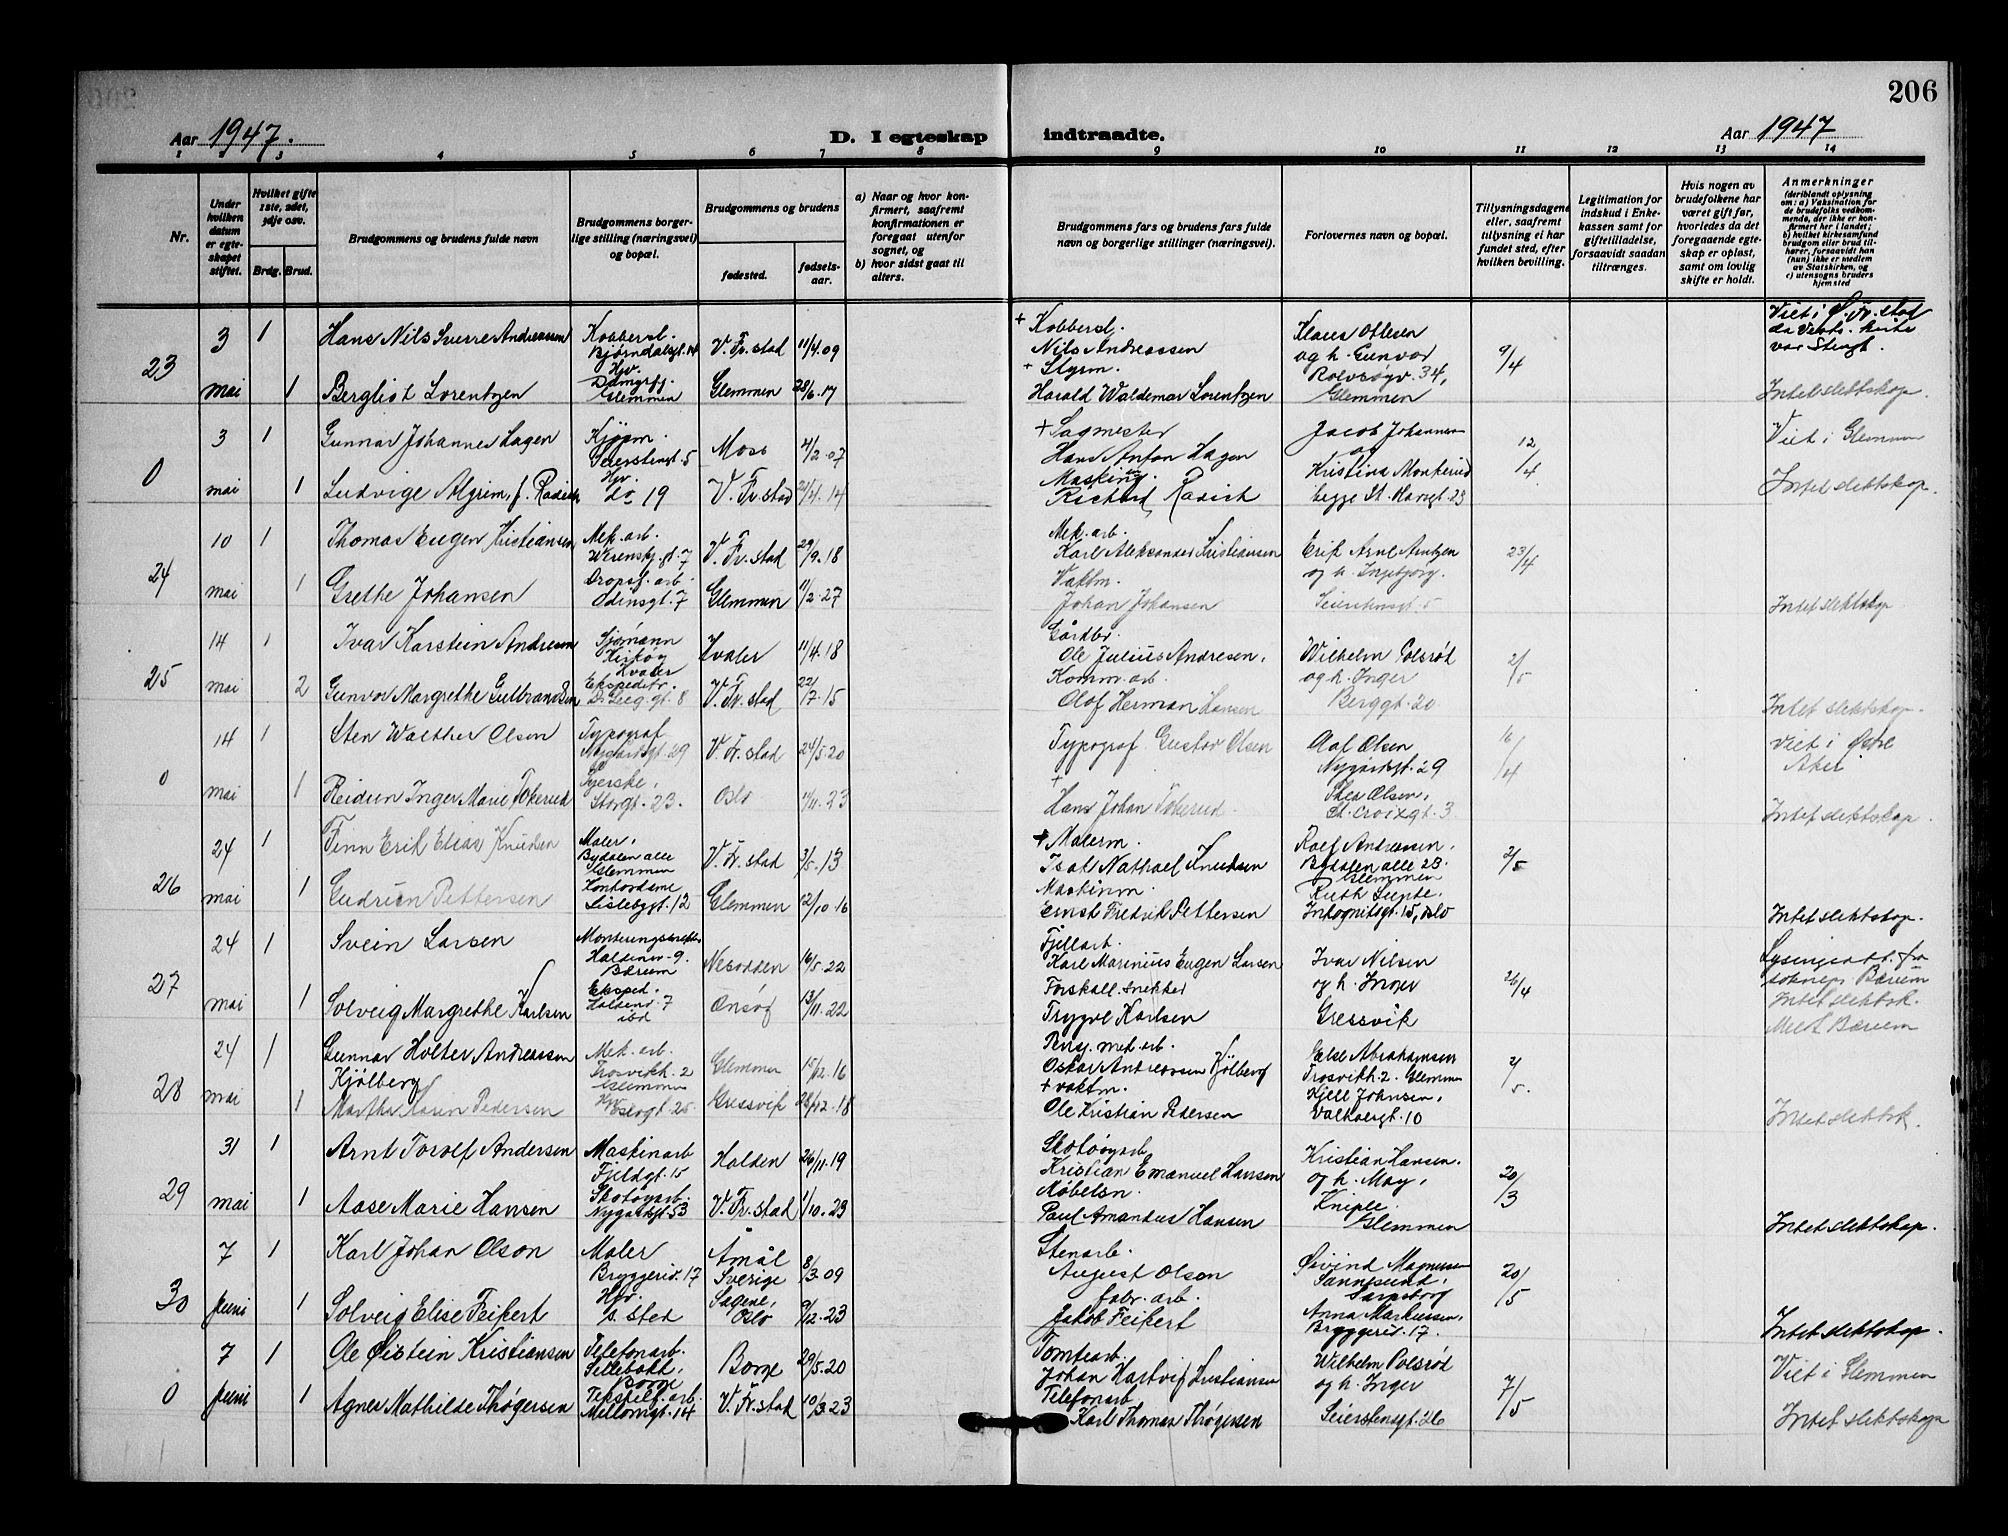 206
Aar 1947.
D. I egteskap indtraadte.
Aar 1947
1 2 3 4 5 6 7 8 9 10 11 12 13 14
Nr.
Under hvilken datum er egteskapet stiftet.
Hvilket gifte 1ste, 2det, 3dje osv.
Brdg. Brud.
Brudgommens og brudens fulde navn
Brudgommens borgerlige stilling (næringsvei) og bopæl.
Brudgommens og brudens
fødested.
fødselsaar.
a) Naar og hvor konfirmert, saafremt konfirmationen er foregaat utenfor sognet, og
b) hvor sidst gaat til alters.
Brudgommens fars og brudens fars fulde navn og borgerlige stillinger (næringsvei).
Forlovernes navn og bopæl.
Tillysningsdagene eller, saafremt tillysning ei har fundet sted, efter hvilken bevilling.
Legitimation for indskud i Enkekassen samt for giftetilladelse, forsaavidt saadan tiltrænges.
Hvis nogen av brudefolkene har været gift før, hvorledes da det foregaaende egteskap er opløst, samt om lovlig skifte er holdt.
Anmerkninger
(deriblandt oplysning om: a) Vaksination for de brudefolks vedkommende, der ikke er konfirmert her i landet; b) hvilket kirkesamfund brudgom eller brud tilhører, forsaavidt han (hun) ikke er medlem av Statskirken, og c) utensogns bruders hjemsted
23
3 mai
1 Hans Nils Sverre Andreassen
Kobbersl. Bjørndalsgt. 14
V. Fr.stad 11/4.09
+ Kobbersl. Nils Andreassen
Klaus Ottesen og h. Gunvor Rolvsøyv. 34, Glemmen
9/4
Viet i Ø. Fr.stad da Vestr. kirke var Stengt.
1 Bergliot Lorentzen
Hjv. Damgt. Glemmen
Glemmen 28/6.17
+ Styrm. Harald Waldemar Lorentzen
Intet slektskap.
0
3 mai
1 Gunnar Johannes Hagen
Kjøpm. Seierstensgt. 5
Moss 4/2.07
+ Sagmester Hans Anton Hagen
Jacob Johannesen og Kristina Monterud begge St. Hansgt. 23
12/4
Viet i Glemmen
1 Ludvige Algrim, f. Radich
Hjv. do. 19
V. Fr.stad 21/4.14
Masking. Richard Radich
Intet slektskap.
24
10 mai
1 Thomas Eugen Kristiansen
Mek. arb. Werenskj. gt. 7
V. Fr.stad 29/9.18
Mek. arb. Karl Aleksander Kristiansen
Erik Arne Arntzen og h. Ingebjørg. Seierstensgt. 5
23/4
1 Grethe Johansen
Dropsf. arb. Odinsgt. 7
Glemmen 11/2.27
Vaktm. Johan Johansen
Intet slektskap
25
14 mai
1 Ivar Karstein Andresen
Sjømann Kirkøy Hvaler
Hvaler 11/4.18
Gårdbr. Ole Julius Andresen.
Wilhelm Polsrød og h. Inger Berggt. 20
2/5
2 Gunvor Margrethe Gulbrandsen
Ekspeditr. gt. 8
V. Fr.stad 22/7.15
Komm. arb. Olaf Herman Hansen
Intet slektskap.
0
14 mai
1 Sten Walther Olsen
Typograf Nygårdsgt. 29
V. Fr.stad 24/5.20
Typograf. Gustav Olsen
Aaf Olsen Nygårdsgt. 29
Thea Olsen, St. Croixgt. 3
16/4
Viet i Østre Aker
1 Reidun Inger Marie Tokerud
Syerske, Storgt. 23.
Oslo 11/11.23
+ Hans Johan Tokerud.
Intet slektskap.
26
24 mai
1 Finn Erik Elias Knudsen
Maler, Bydalen alle Glemmen
V. Fr.stad 3/5.13
+ Malerm. Isak Nathael Knudsen
Rolf Andreassen, Bydalen alle 23. Glemmen
Ruth Lunde, Inkognitogt. 15, Oslo
2/5
1 Gudrun Pettersen
Kontordame Lislebygt. 12
Glemmen 12/10.16
Maskinm. Ernst Fredrik Pettersen
Intet slektskap.
27
24 mai
1 Svein Larsen
Haldenv. 9. Bærum
Nesodden 16/5.22
Fjellarb. Karl Marinius Eugen Larsen
Ivar Nilsen og h. Inger Gressvik
26/4
Lysingsatt. fra sokneps. Bærum
Intet slektsk.
Melt Bærum
1 Solveig Margrethe Karlsen
Eksped. Haldenv. 7 ibd
Onsøy 13/11.22
Forskall. snekker Trygve Karlsen
28
24 mai
1 Gunnar Holter Andreassen Kjølberg
Mek. arb. Trosvikk. 2 Glemmen
Glemmen 15/12.16
Pensj. mek. arb. Oskar Andreassen Kjølberg
Else Abrahamsen Trosvikk. 2. Glemmen
Kjell Johnsen, Valbergt. 10
1 Martha Karin Pedersen
Gressvik 28/12.18
+ Vaktm. Ole Kristian Pedersen
Intet slektsk.
29
31 mai
1 Arnt Torolf Andersen
Maskinarb Fjeldgt. 15
Halden 26/11.19
Skotøyarb. Kristian Emanuel Hansen
Kristian Hansen. og h. May, Kniple. Glemmen
20/3
1 Aase Marie Hansen
Skotøyarb. Nygaardsgt. 53
V. Fr.stad 1/10.23
Møbelsn. Paul Amandus Hansen
Intet slektskap.
30
7 juni
1 Karl Johan Olson
Maler Bryggeriv. 17
Åmål Sverige 8/3.09
Stenarb. August Olson
Øivind Magnussen Sannesund, Sarpsborg
Anna Markussen, Bryggeriv. 17.
20/5
1 Solveig Elise Feikert
Hjv. s. sted
Sagene, Oslo 9/12.23
fabr. arb. Jakob Feikert
Intet slektskap.
0
7 juni
1 Ole Øistein Kristiansen
Telefonarb. Sellebakk, Borge
Borge 29/5.20
Tomtearb. Johan Hartvig Kristiansen
Wilhelm Polsrød og h. Inger Seierstensgt. 26
7/5
Viet i Glemmen
1 Agnes Mathilde Thøgersen
Tekstilf. arb. Mellomgt. 14
V. Fr.stad 10/3.23
Telefonarb Karl Thomas Thøgersen
Intet slektskap